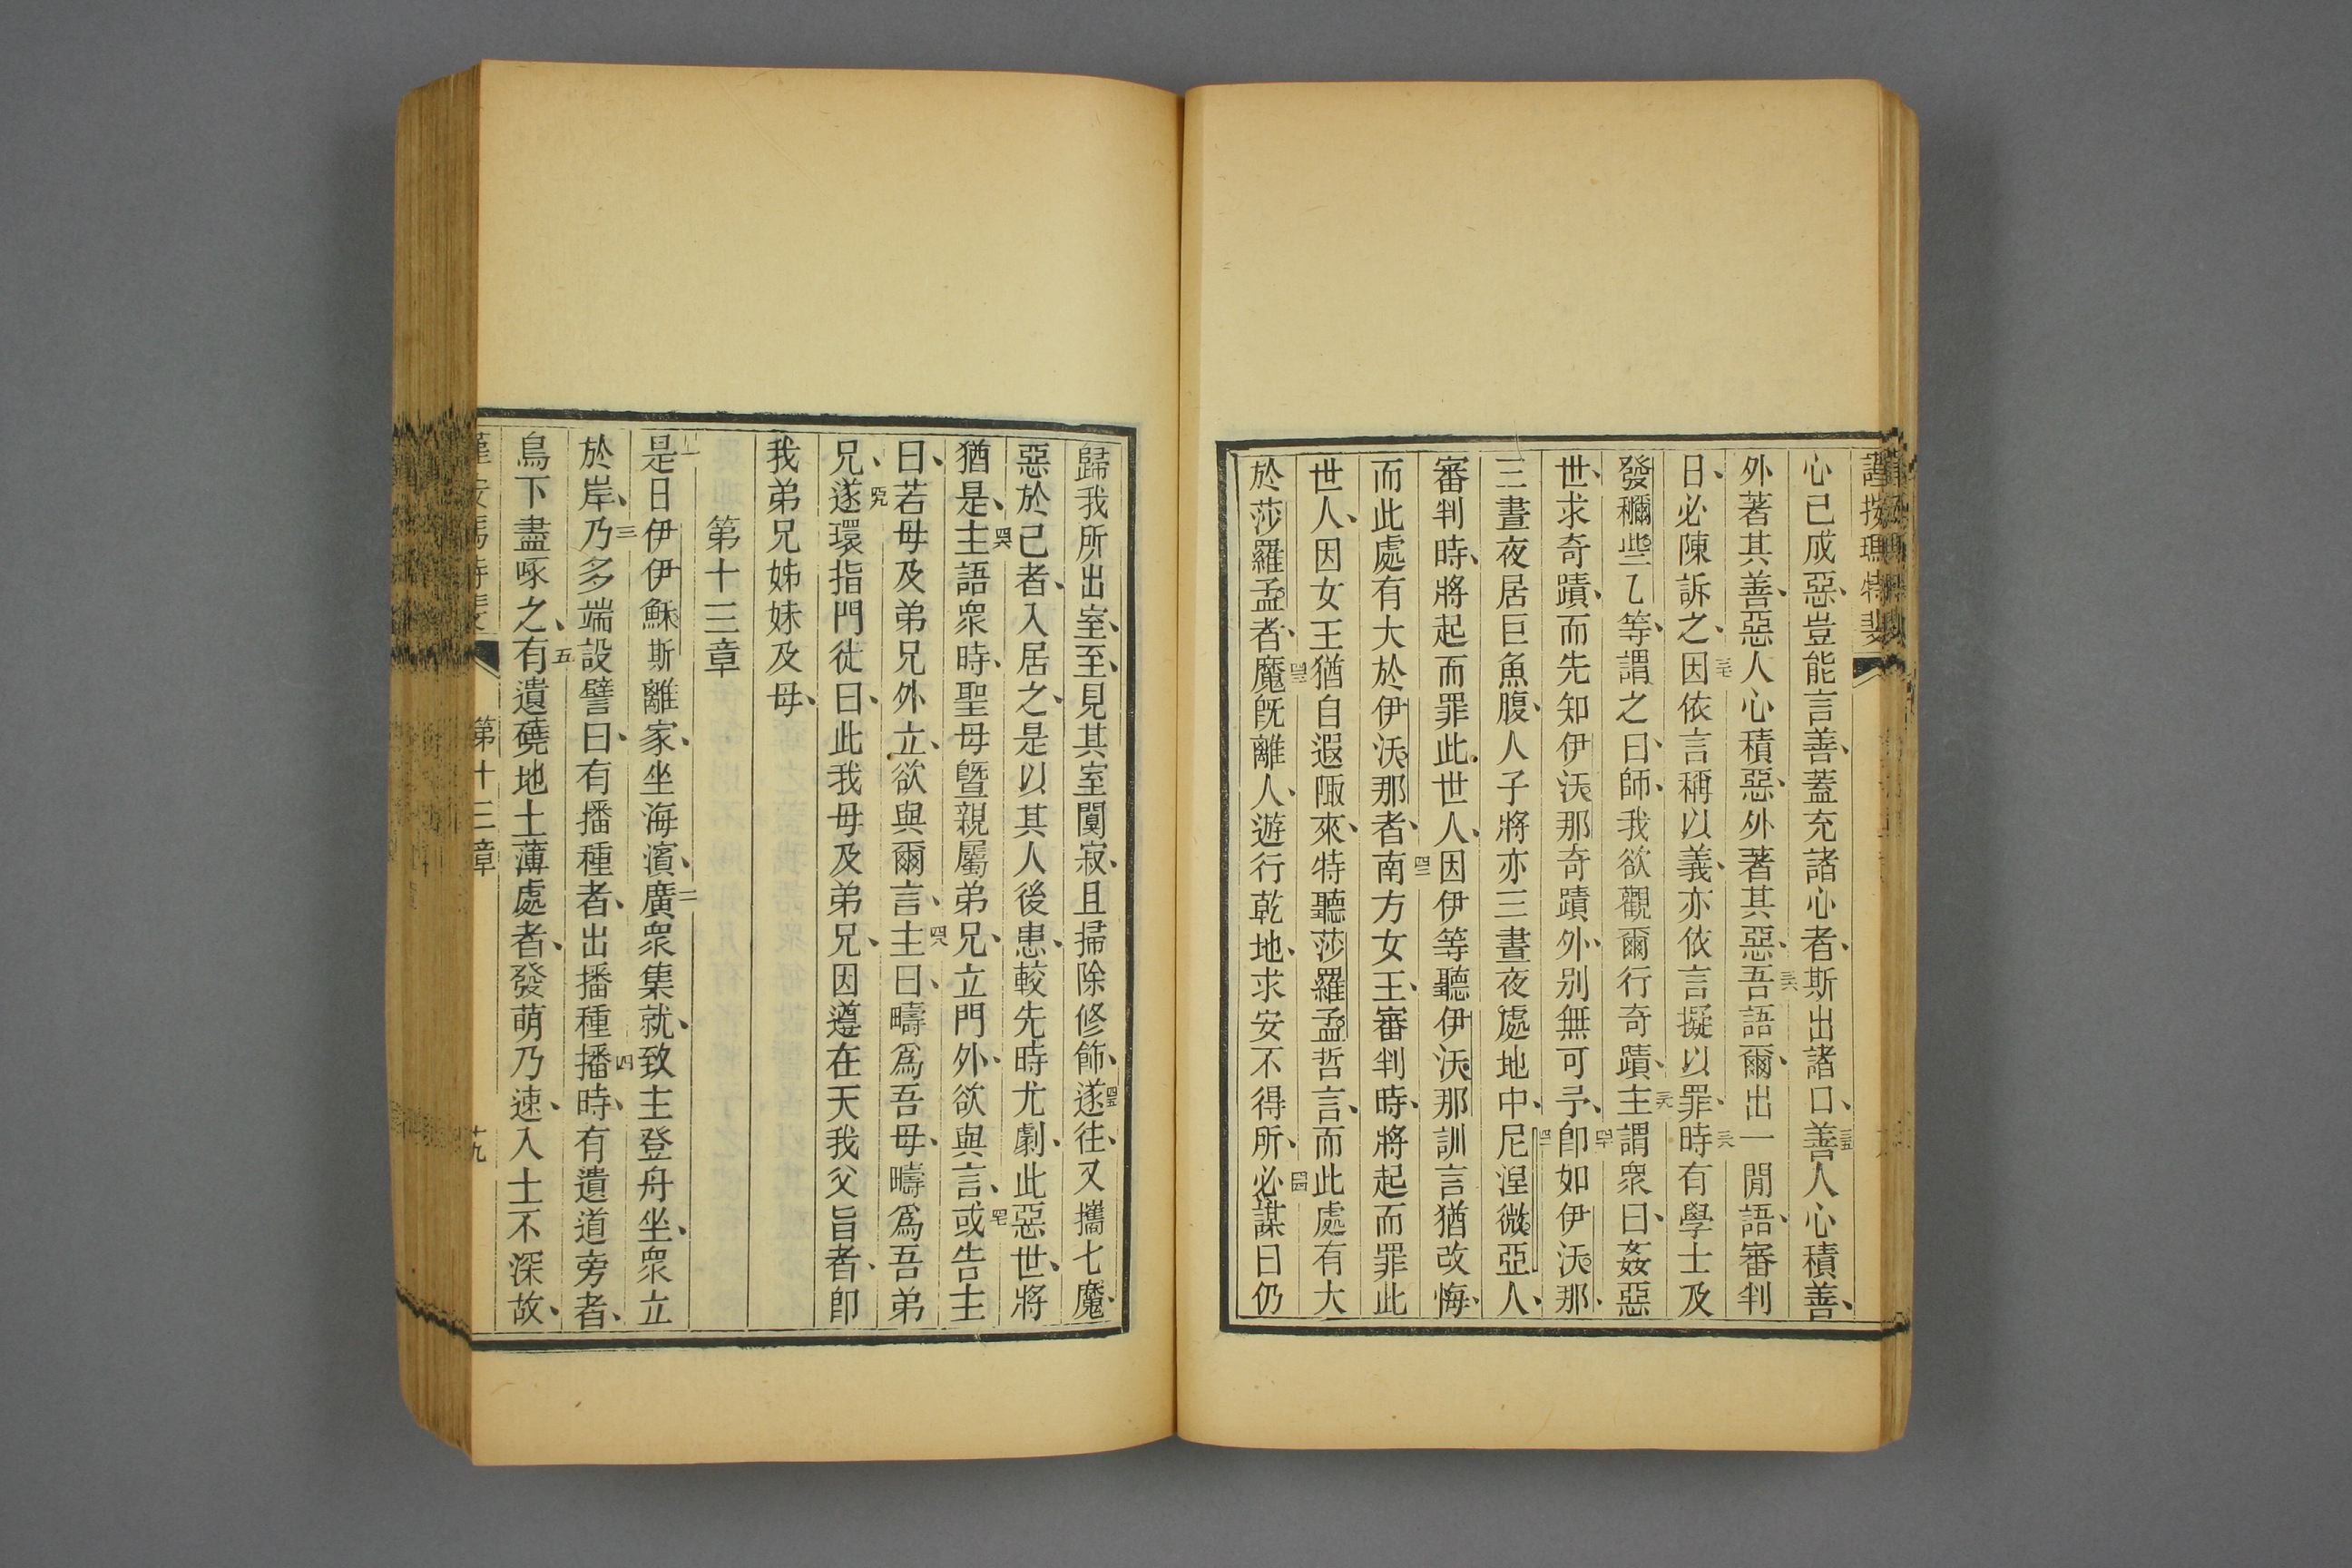 心已成惡、豈能言善、蓋充諸心者、斯出諸口、三五善人心積善、
外著其善、惡人心積惡、外著其惡、三六吾語爾、出一閒語、審判
日、必陳訴之、三七因依言稱以義、亦依言擬以罪、三八時有學士及
發穪些乙等、謂之曰、師、我欲觀爾行奇蹟、三九主謂衆曰、姦惡
世、求奇蹟、而先知伊沃那奇蹟外、別無可予、四十卽如伊沃那、
三晝夜居巨魚腹、人子將亦三晝夜處地中、四一尼涅微亞人、
審判時、將起而罪此世人、因伊等聽伊沃那訓言猶改悔、
而此處有大於伊沃那者、四二南方女王、審判時、將起而罪此
世人、因女王猶自遐陬來、特聽莎羅孟哲言、而此處有大
於莎羅孟者、四三魔旣離人、遊行乾地、求安不得所、四四必謀曰仍
歸我所出室、至、見其室闃寂、且掃除修飾、四五遂往、又攜七魔、
惡於己者、入居之、是以其人後患、較先時尤劇、此惡世、將
猶是、四六主語衆時、聖母曁親屬弟兄、立門外、欲與言、四七或告主
曰、若母及弟兄外立、欲與爾言、四八主曰、疇爲吾母、疇爲吾弟
兄、四九遂環指門徒曰、此我母及弟兄、因遵在天我父旨者、卽
我弟兄姊妹及母、
第十三章
一是日伊伊穌斯離家、坐海濱、二廣衆集就、致主登舟坐、衆立
於岸、三乃多端設譬曰、有播種者、出播種、四播時、有遺道旁者、
鳥下盡啄之、五有遺磽地土薄處者、發萌乃速、入土不深故、
第十三章